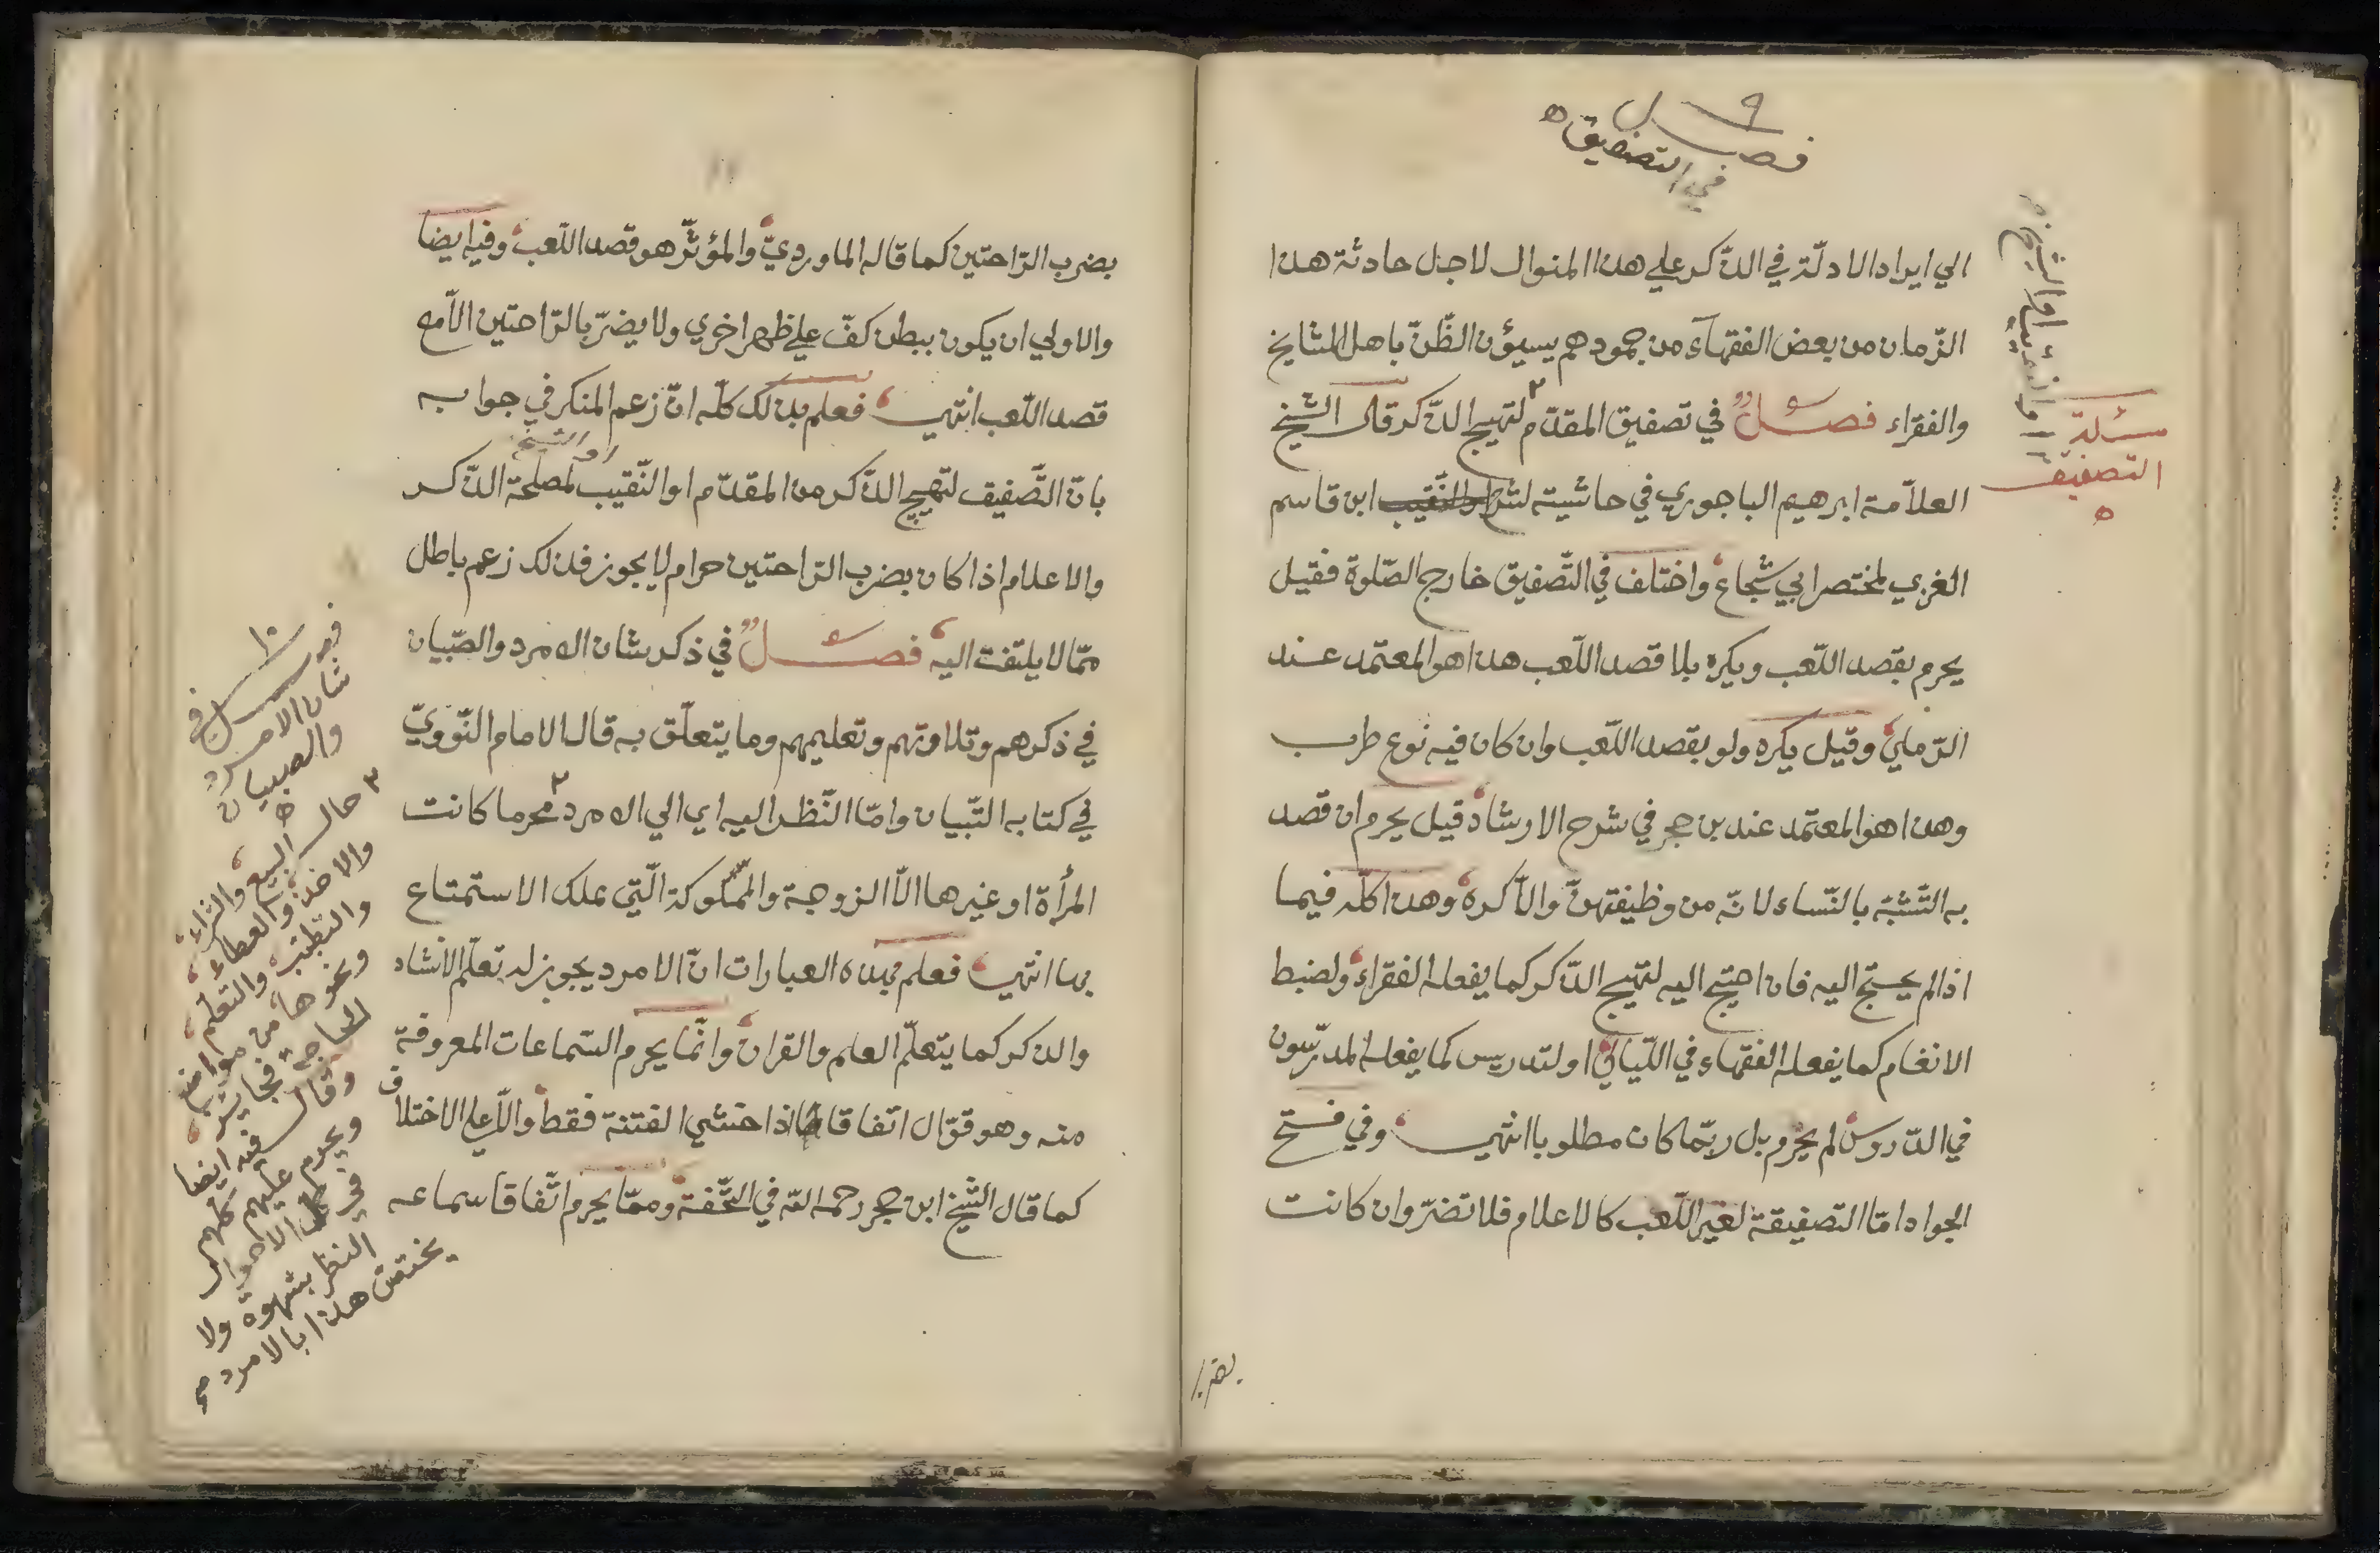 ٩
فصل
في التصفيق ه
الي ايراد الادلّة في الذّكر علي هذا المنوال لاجل حادثة هذا
الزّمان من بعض الفقهآء من جمودهم يسيؤن الظّنّ باهل المشايخ
والفقراء فصلٌ في تصفيق المقدّم٢ لتهييج الذّكر قال الشيخ
العلاّمة ابرهيم الباجوري في حاشيته لشرح ابن قاسم
الغزي لمختصر ابي شجاع واختلف في التّصفيق خارج الصّلوة فقيل
يحرم بقصد اللّعب ويكره بلا قصد اللّعب هذا هو المعتمد عند
الرّملي وقيل يكره ولو بقصد اللّعب وان كان فيه نوع طرب
وهذا هو المعتمد عند بن حجر في شرح الارشاد قيل يحرم ان قصد
به التّشبّه بالنّساء لانّه من وظيفتهنّ والاّ كره وهذا كلّه فيما
اذا لم يحتج اليه فان احتيج اليه لتهييج الذّكر كما يفعله الفقراء ولضبط
الانغام كما يفعله الفقهاء في اللّيالي او لتدريس كما يفعله المدرّسون
في الدّروس لم يحرم بل ربّما كان مطلوبا انتهي وفي فتح
الجواد امّا التصفيقة لغير اللّعب كالاعلام فلا تضرّ وان كانت
بضرب
٢ او النّقيب او الشيخ
مسئلة
التصفيق
ه
بضرب الرّاحتين كما قاله الماورديّ والمؤثّر هو قصد اللّعب وفيه ايضا
والاولي ان يكون ببطن كفّ علي ظهر اخري ولا يضرّ بالرّاحتين الاّ مع
قصد اللّعب انتهي فعلم بذلك كلّه انّ زعم المنكر في جوابه
او الشيخ
بانّ التّصفيق لتهييج الذّكر من المقدّم او النّقيب لمصلحة الذّكر
والاعلام اذا كان بضرب الرّاحتين حرام لا يجوز فذلك زعم باطل
ممّا لا يلتفت اليه فصلٌ في ذكر شان الامرد والصّبيان
في ذكرهم وتلاوتهم وتعليمهم وما يتعلّق به قال الامام النّوويّ
في كتابه التّبيان وامّا النّظر اليه اي الي الامرد٢ محرما كانت
المرأة او غيرها الاّ الزوجة والمملوكة الّتي يملك الاستمتاع
بها انتهي فعلم بهذه العبارات انّ الامرد يجوز له تعلّم الانشاد
والذكر كما يتعلّم العلم والقران وانّما يحرم السّماعات المعروفة
منه وهو قوّال اتفاقا اذا خشي الفتنة فقط والاّ علي الاختلاف
كما قال الشّيخ ابن حجر رحمه اللّه في التّحفة وممّا يحرم اتّفاقا سماعه
١٠
فصل في
شان الامرد
والصبيان
ه
٢ حال البيع والشراء
والاخذ والعطاء
والتطبّب والتعلّم
ونحوها من مواضع
الحاجة فجايز
وقال فيه ايضا
ويحرم عليهم كلهم
في كل الاحوال
النظر بشهوة ولا
يختصّ هذا بالامرد